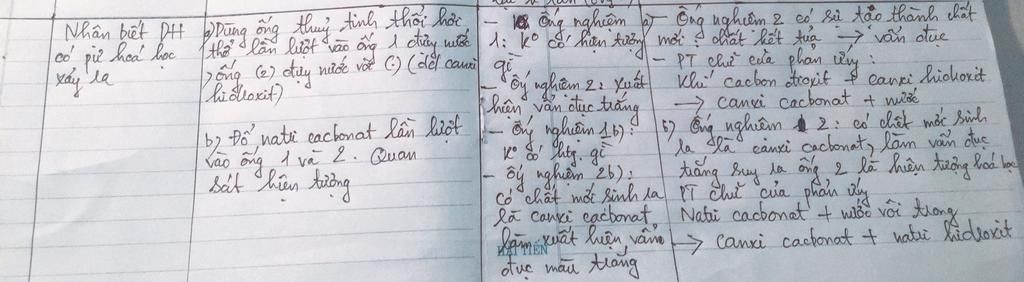 Nhân biết DH
có pứ hoá học
xảy ra
a) Dùng ống thuỷ tinh thổi hơi
thở lần lượt vào ống 1 đựng nước
, ống (2) đựng nước vôi (.) (dd canxi
hidroxit)
b) Đổ natri cacbonat lần lượt
vào ống 1 và 2. Quan
sát hiện tượng
- Ống nghiệm
1: K° có hiện tượng
gì
- Ống nghiệm 2: xuất
hiện vẩn đục trắng
- Ống nghiệm 1b):
K° có htg. gì
- Ống nghiệm 2b):
có chất mới sinh ra
là canxi cacbonat,
làm xuất hiện vẩn
HẢI TIẾN
đục màu trắng
a) - Ống nghiệm 2 có sự tạo thành chất
mới: chất kết tủa → vẩn đục
- PT chữ của phản ứng:
Khí cacbon đioxit + canxi hidroxit
→ canxi cacbonat + nước
b) Ống nghiệm 2: có chất mới sinh
ra là canxi cacbonat, làm vẩn đục
trắng suy ra ống 2 là hiện tượng hoá học
PT chữ của phản ứng
Natri cacbonat + nước vôi trong
→ canxi cacbonat + natri hidroxit